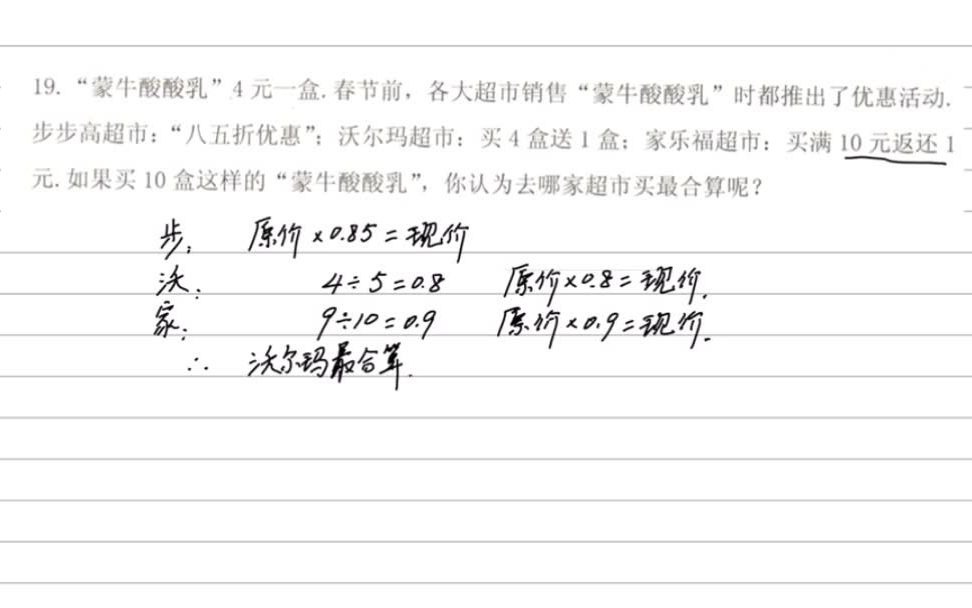 19. “蒙牛酸酸乳”4 元一盒. 春节前，各大超市销售“蒙牛酸酸乳”时都推出了优惠活动.
步步高超市：“八五折优惠”；沃尔玛超市：买 4 盒送 1 盒；家乐福超市：买满 10 元返还 1
元. 如果买 10 盒这样的“蒙牛酸酸乳”，你认为去哪家超市买最合算呢？
步： 原价×0.85=现价
沃： 4÷5=0.8 原价×0.8=现价.
家： 9÷10=0.9 原价×0.9=现价.
∴ 沃尔玛最合算.